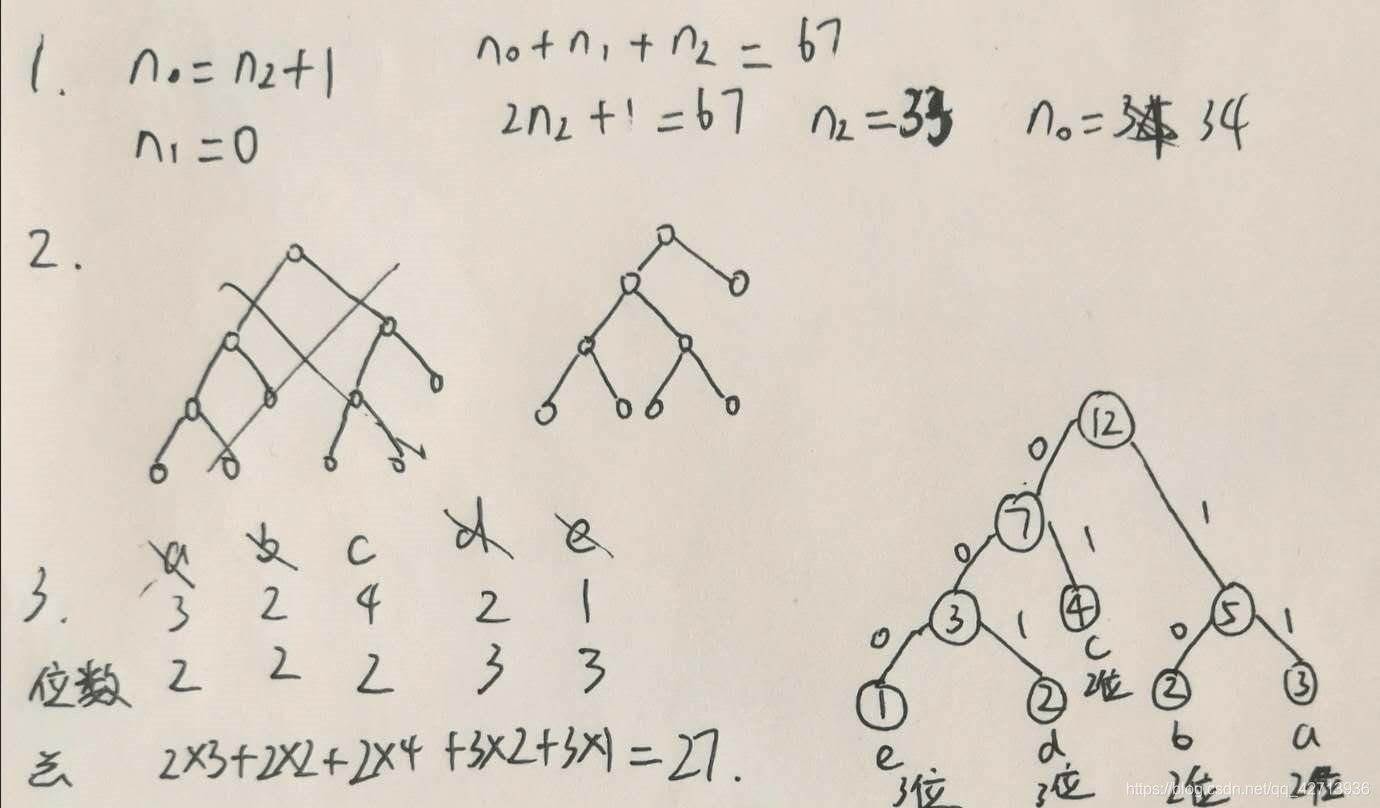 1. n₀ = n₂+1 n₀+n₁+n₂ = 67
n₁ = 0 2n₂+1 = 67 n₂ = 33 n₀ = 34
2.
12
0 1
7
0 1
3 4 5
0 1 c 0 1
2位
1 2 2 3
e d b a
3位 3位 2位 2位
a b c d e
3. 3 2 4 2 1
位数 2 2 2 3 3
2×3+2×2+2×4+3×2+3×1=27.
https://blog.csdn.net/qq_42713936